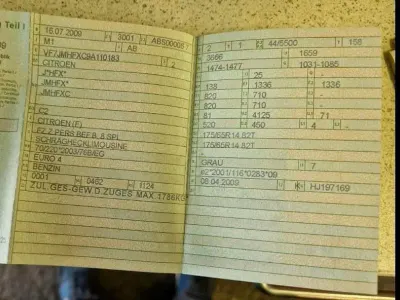 Teil I
16.07.2009 3001 AB500008
M1 AB
VF7JMHFXC9A110183
CITROEN
J*HFX*
JMHFX*
JMHFXC
C2
CITROEN (F)
FZ.Z.PERS.BEF.B. 8 SPL.
SCHRÄGHECKLIMOUSINE
70/220*2003/76B/EG
EURO 4
BENZIN
0001 0462 1124
ZUL.GES-GEW.D.ZUGES MAX.1786KG
2 1 44/5500 158
3666 1659
1474-1477 1031-1085
25
138 1336 1336
820 710 -
820 710 -
81 4125 71
520 450 4 -
175/65R14 82T
175/65R14 82T
-
GRAU 7
e2*2001/116*0283*09
08.04.2009 K HJ197169